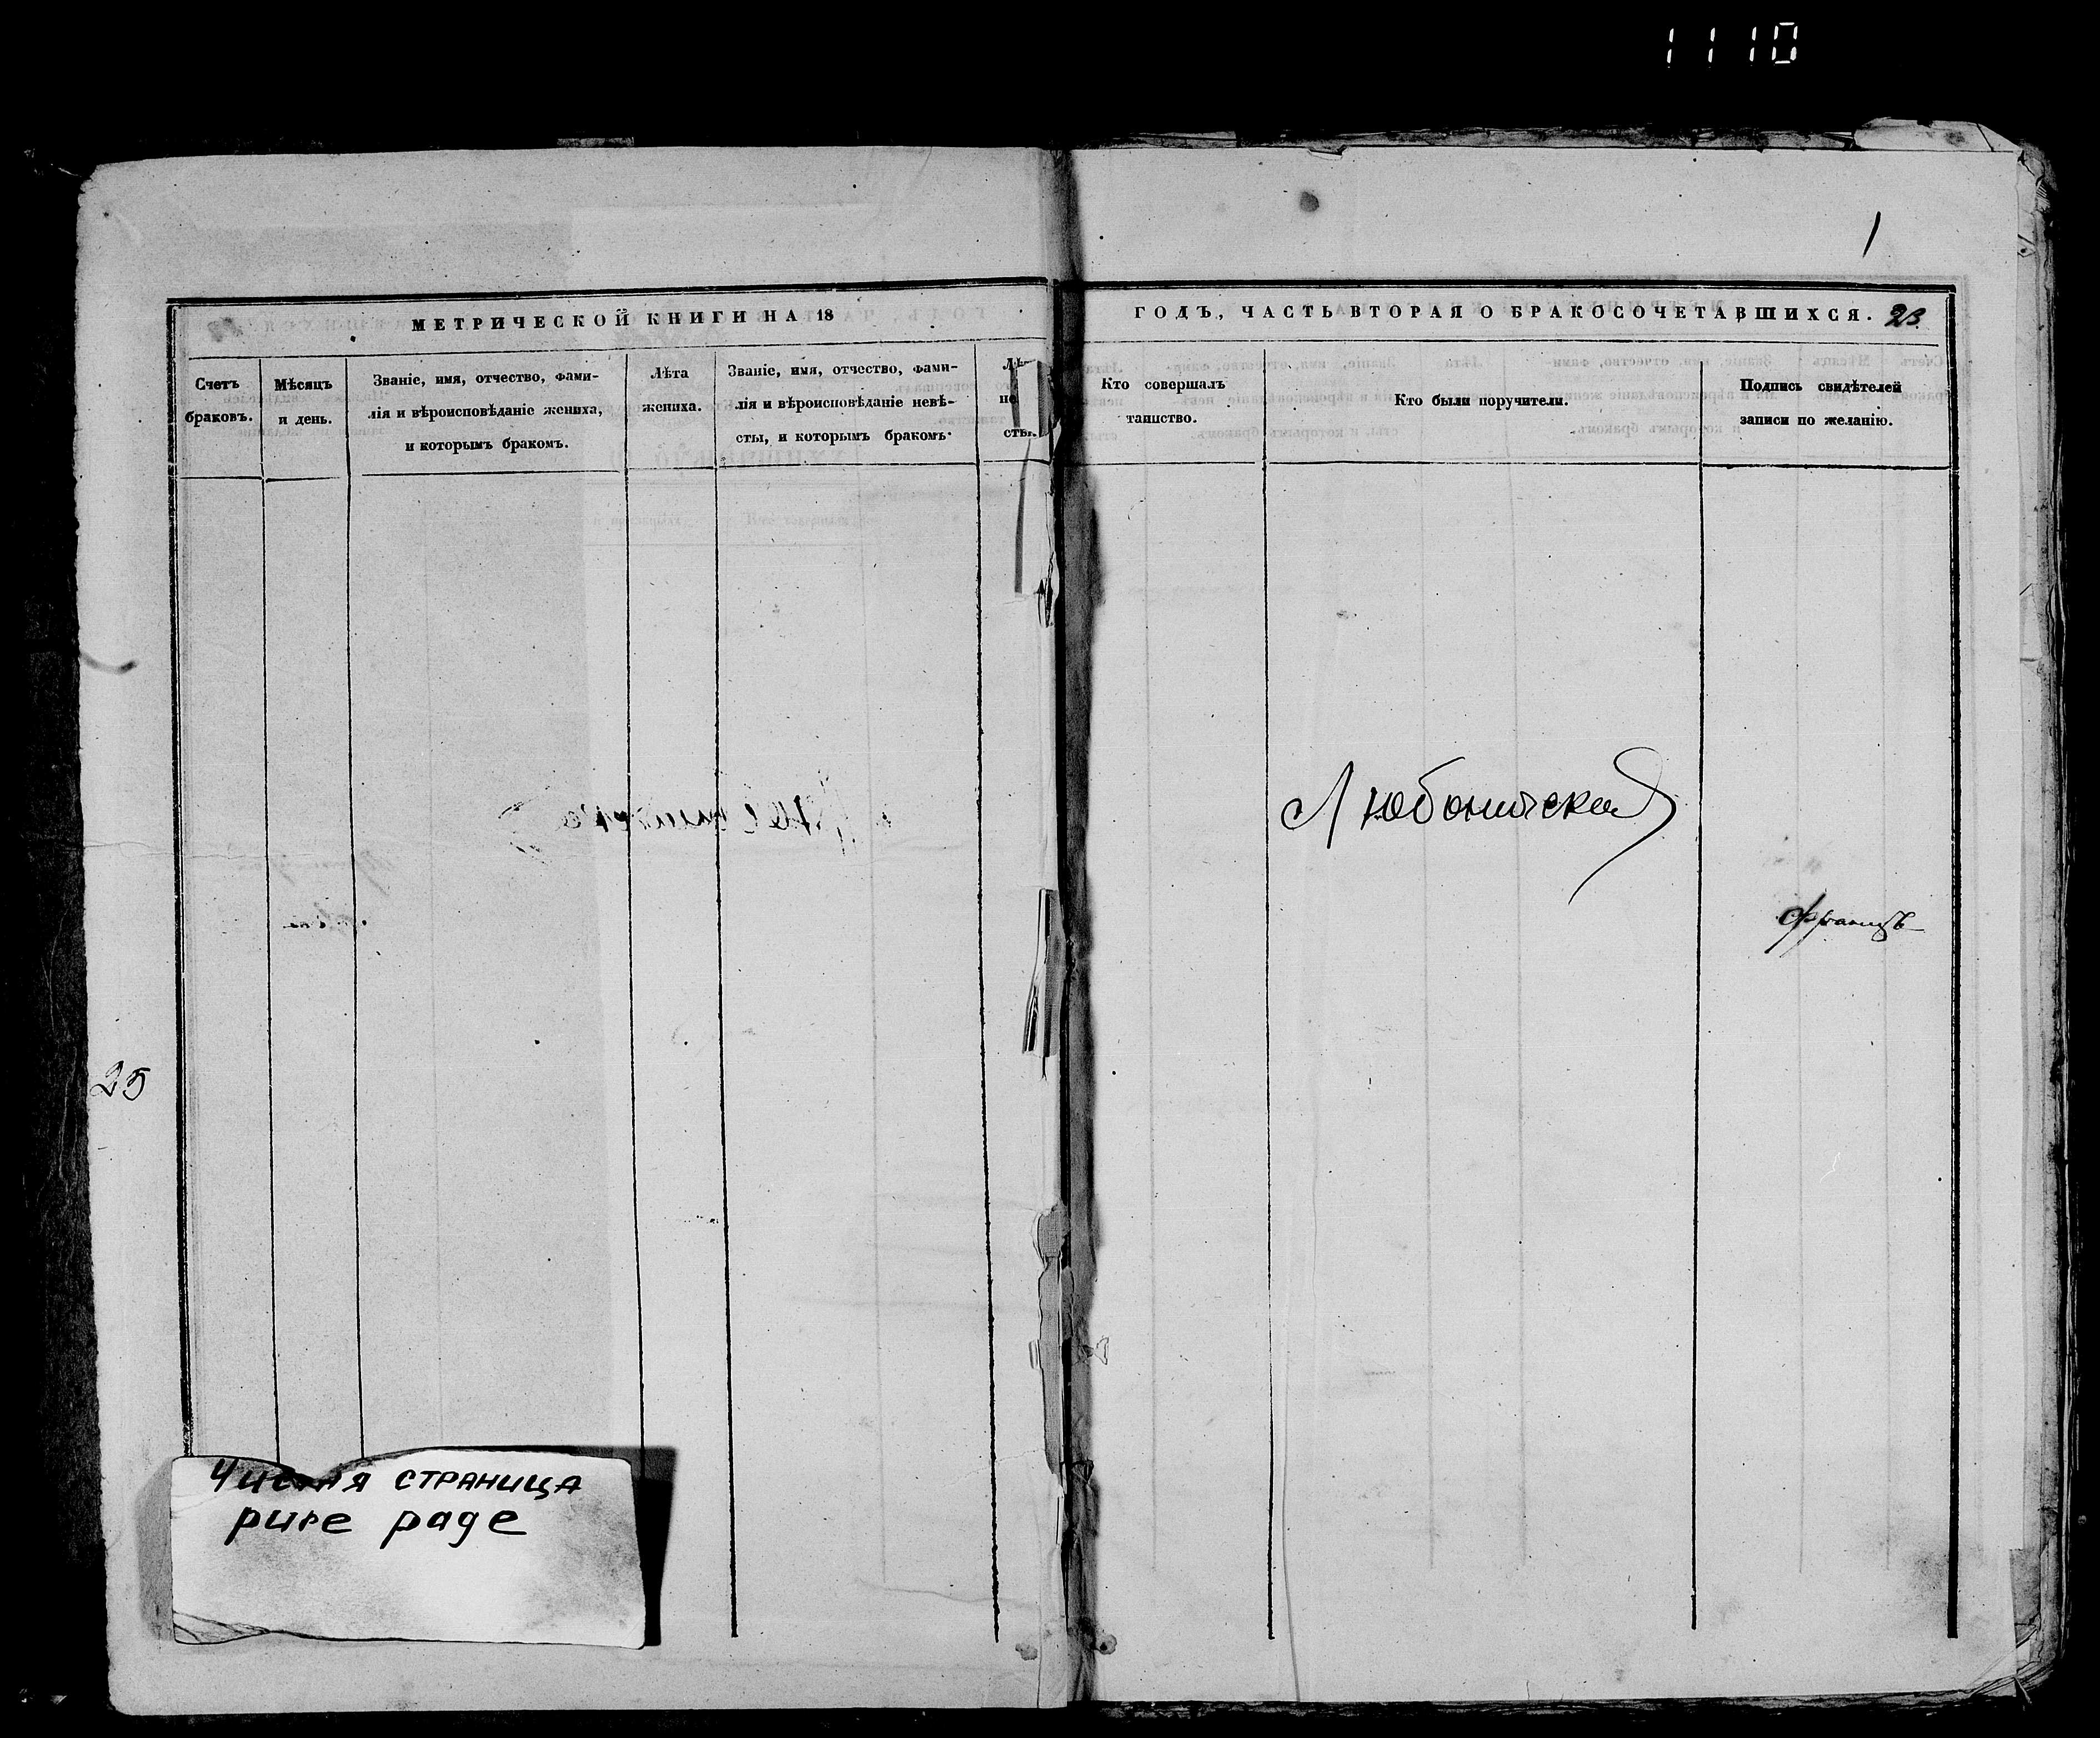 1110
1
МЕТРИЧЕСКОЙ КНИГИ НА 18
ГОДЪ, ЧАСТЬ ВТОРАЯ О БРАКОСОЧЕТАВШИХСЯ. 23
Счетъ
браковъ.
Мѣсяцъ
и день.
Званіе, имя, отчество, фами-
лія и вѣроисповѣданіе жениха,
и которымъ бракомъ.
Лѣта
жениха.
Званіе, имя, отчество, фами-
лія и вѣроисповѣданіе невѣ-
сты, и которымъ бракомъ.
Кто совершалъ
таинство.
Кто были поручители.
Подпись свидѣтелей
записи по желанію.
Францъ
25
Чистая страница
pure page